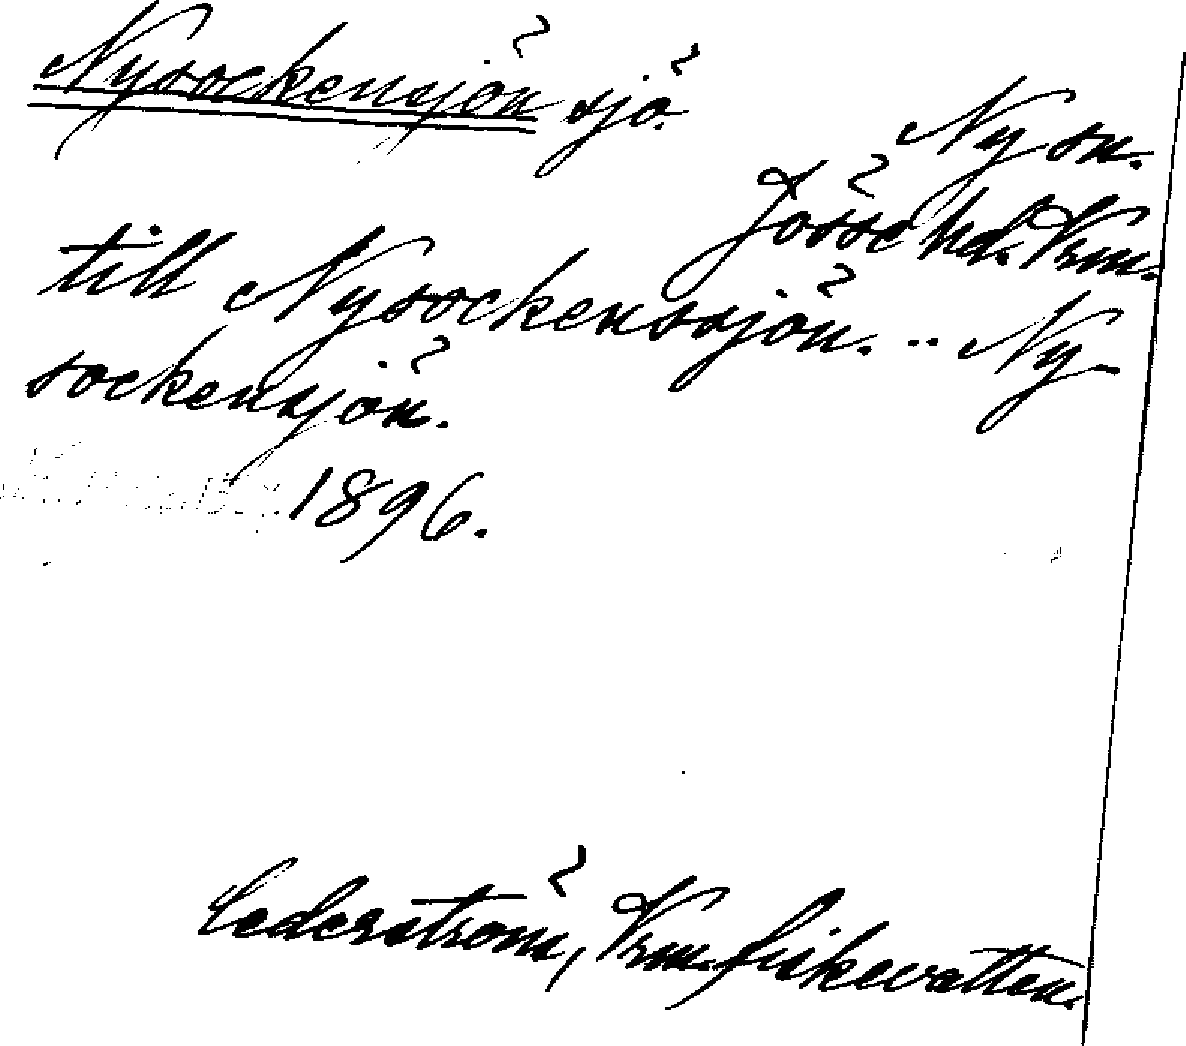 Nysockensjön sjö.
Ny sn.
Jösse hd. Vrm.
till Nysockenssjön. .. Ny-
sockensjön.
1896.
Cederström, Vrm. fiskevatten.